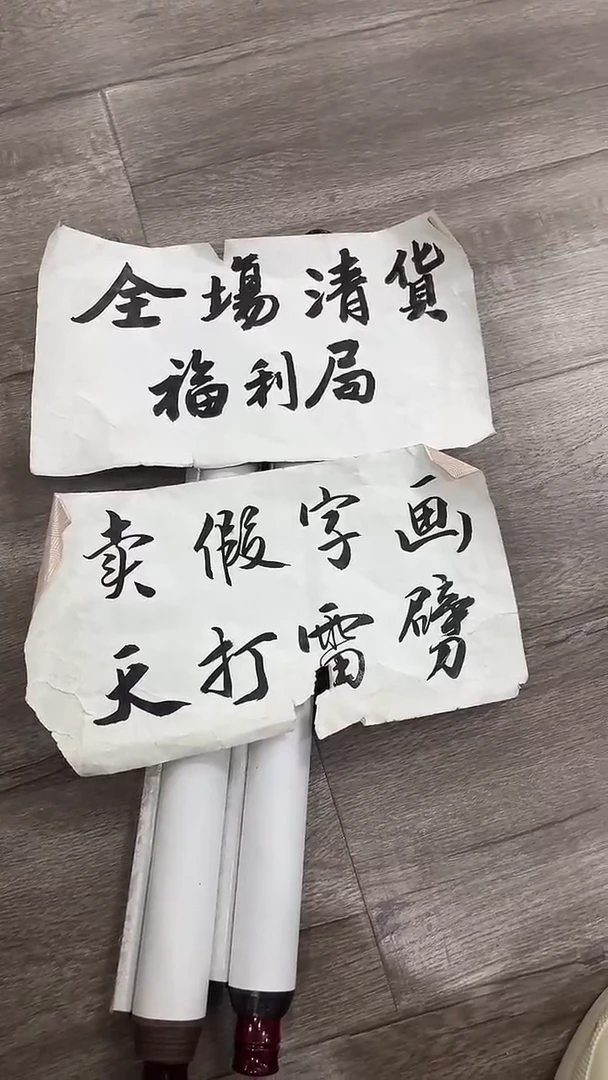 全場清貨
福利局
卖假字画
天打雷劈